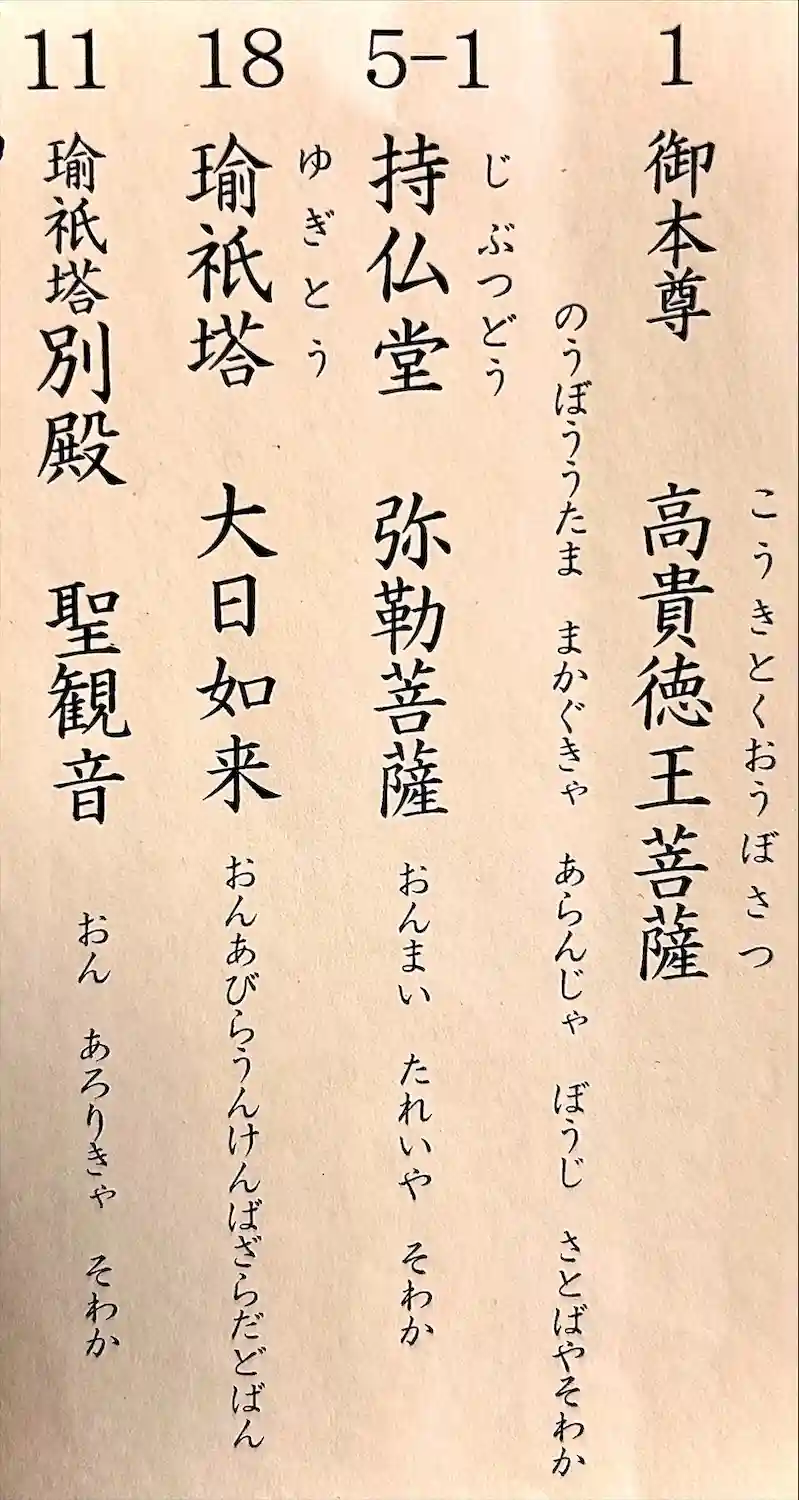 1
御本尊 高貴徳王菩薩
こうきとくおうぼさつ
のうぼううたま まかぐきゃ あらんじゃ ぼうじ さとばやそわか
5-1
じぶつどう
持仏堂 弥勒菩薩 おんまい たれいや そわか
18
ゆぎとう
瑜祇塔 大日如来 おんあびらうんけんばざらだどばん
11
瑜祇塔別殿 聖観音 おん あろりきゃ そわか